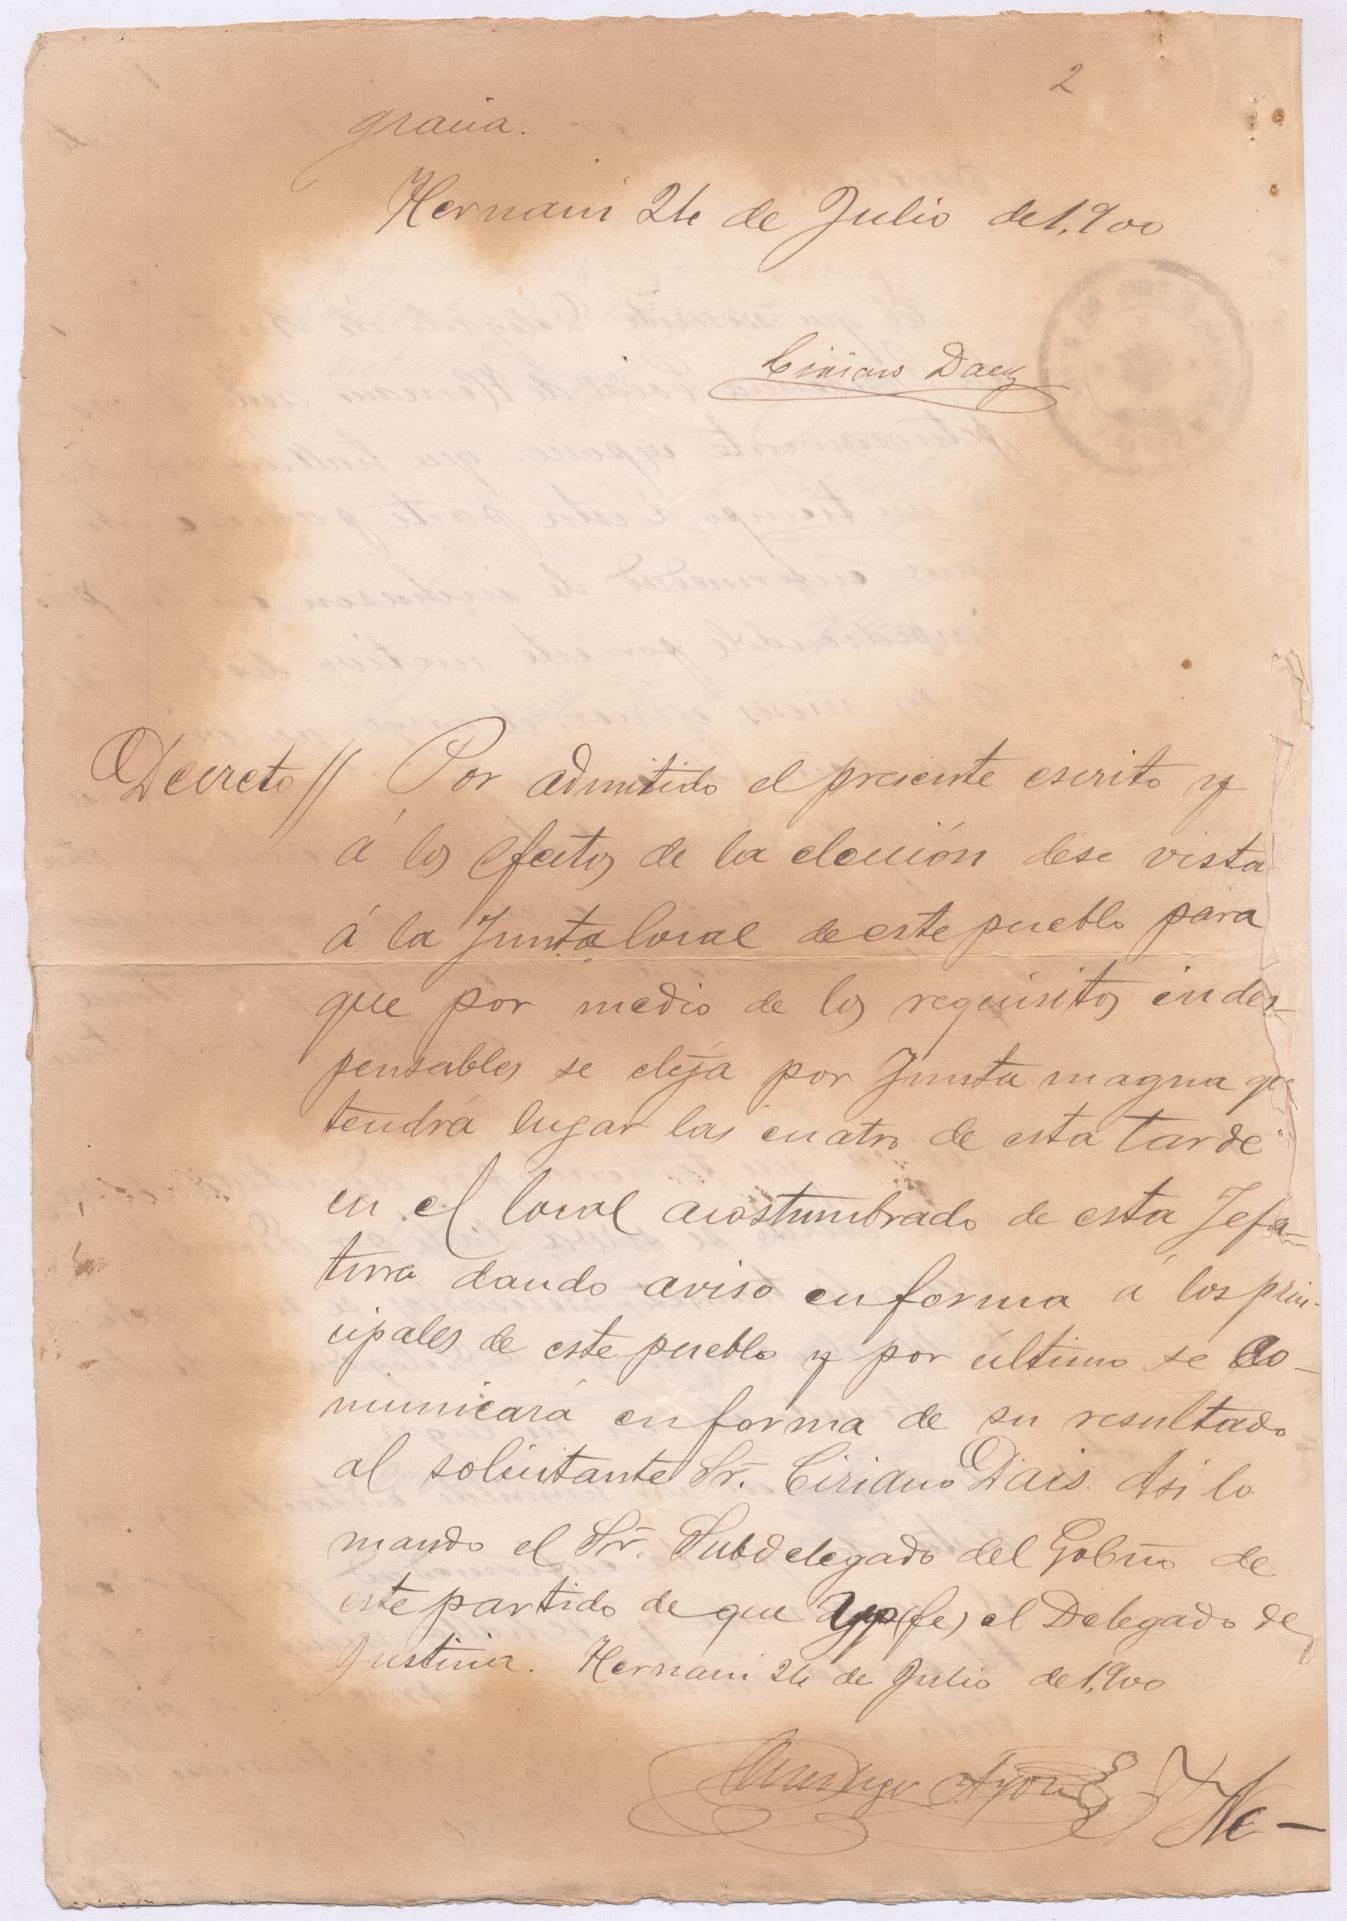 2
gracia.
Hernani 24 de Julio de 1.900
Ciriaco Daez
Decreto // Por admitido el presente escrito y
á los efectos de la elección dese vista
á la Junta local de este pueblo para
que por medio de los requisitos indes-
pensables se elija por Junta magna que
tendrá lugar las cuatro de esta tarde
en el local acostumbrado de esta Jefa-
tura dando aviso en forma á los prin-
cipales de este pueblo y por último se co-
municará en forma de su resultado
al solicitante Sr. Ciriaco Dais. Asi lo
mando el Sor. Subdelegado del Gobno de
este partido de que (fe) el Delegado de
Justicia. Hernani 24 de Julio de 1.900